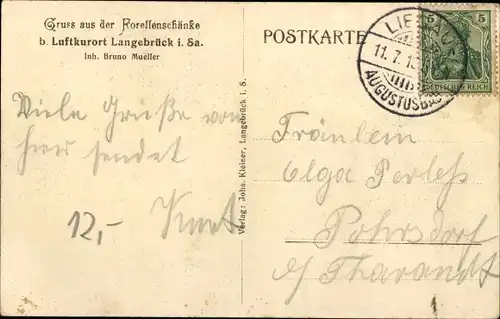 Gruss aus der Forellenschänke
b. Luftkurort Langebrück i. Sa.
Inh. Bruno Mueller
Viele Grüße von
hier sendet
Kurt
12,-
Verlag: Johs. Kleiner, Langebrück i. S.
POSTKARTE
LIEGAU
11.7.1
AUGUSTUSBAD
5 5
DEUTSCHES REICH
Fräulein
Olga
Pohrsdorf
b/ Tharandt